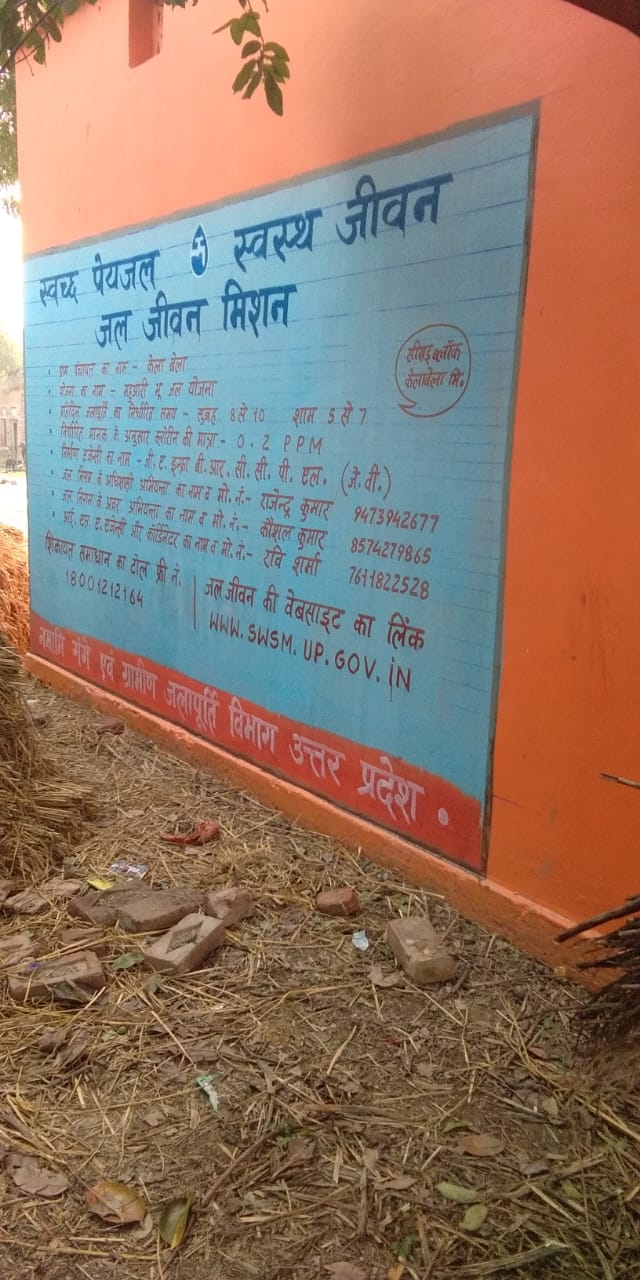 स्वच्छ पेयजल स्वस्थ जीवन
जल जीवन मिशन
ब्लॉक
केलाबेला मि.
ग्राम पंचायत का नाम - केला बेला
योजना का नाम - महुआरी भू जल योजना
प्रतिदिन जलापूर्ति का निर्धारित समय - सुबह 8 से 10 शाम 5 से 7
निर्धारित मानक के अनुसार क्लोरीन की मात्रा - 0.2 PPM
निर्माण एजेन्सी का नाम - जी. ए. इन्फ्रा बी. आर. सी. सी. पी. एल. (जे.वी.)
जल निगम के अधिशासी अभियन्ता का नाम व मो. नं.- राजेन्द्र कुमार 9473942677
जल निगम के अवर अभियन्ता का नाम व मो. नं.- कौशल कुमार 8574279865
आई. एस. ए. एजेन्सी और कॉर्डिनेटर का नाम व मो. नं.- रवि शर्मा 7611822528
शिकायत समाधान का टोल फ्री नं.
18001212164
जल जीवन की वेबसाइट का लिंक
WWW.SWSM.UP.GOV.iN
नमामि गंगे एवं ग्रामीण जलापूर्ति विभाग उत्तर प्रदेश .